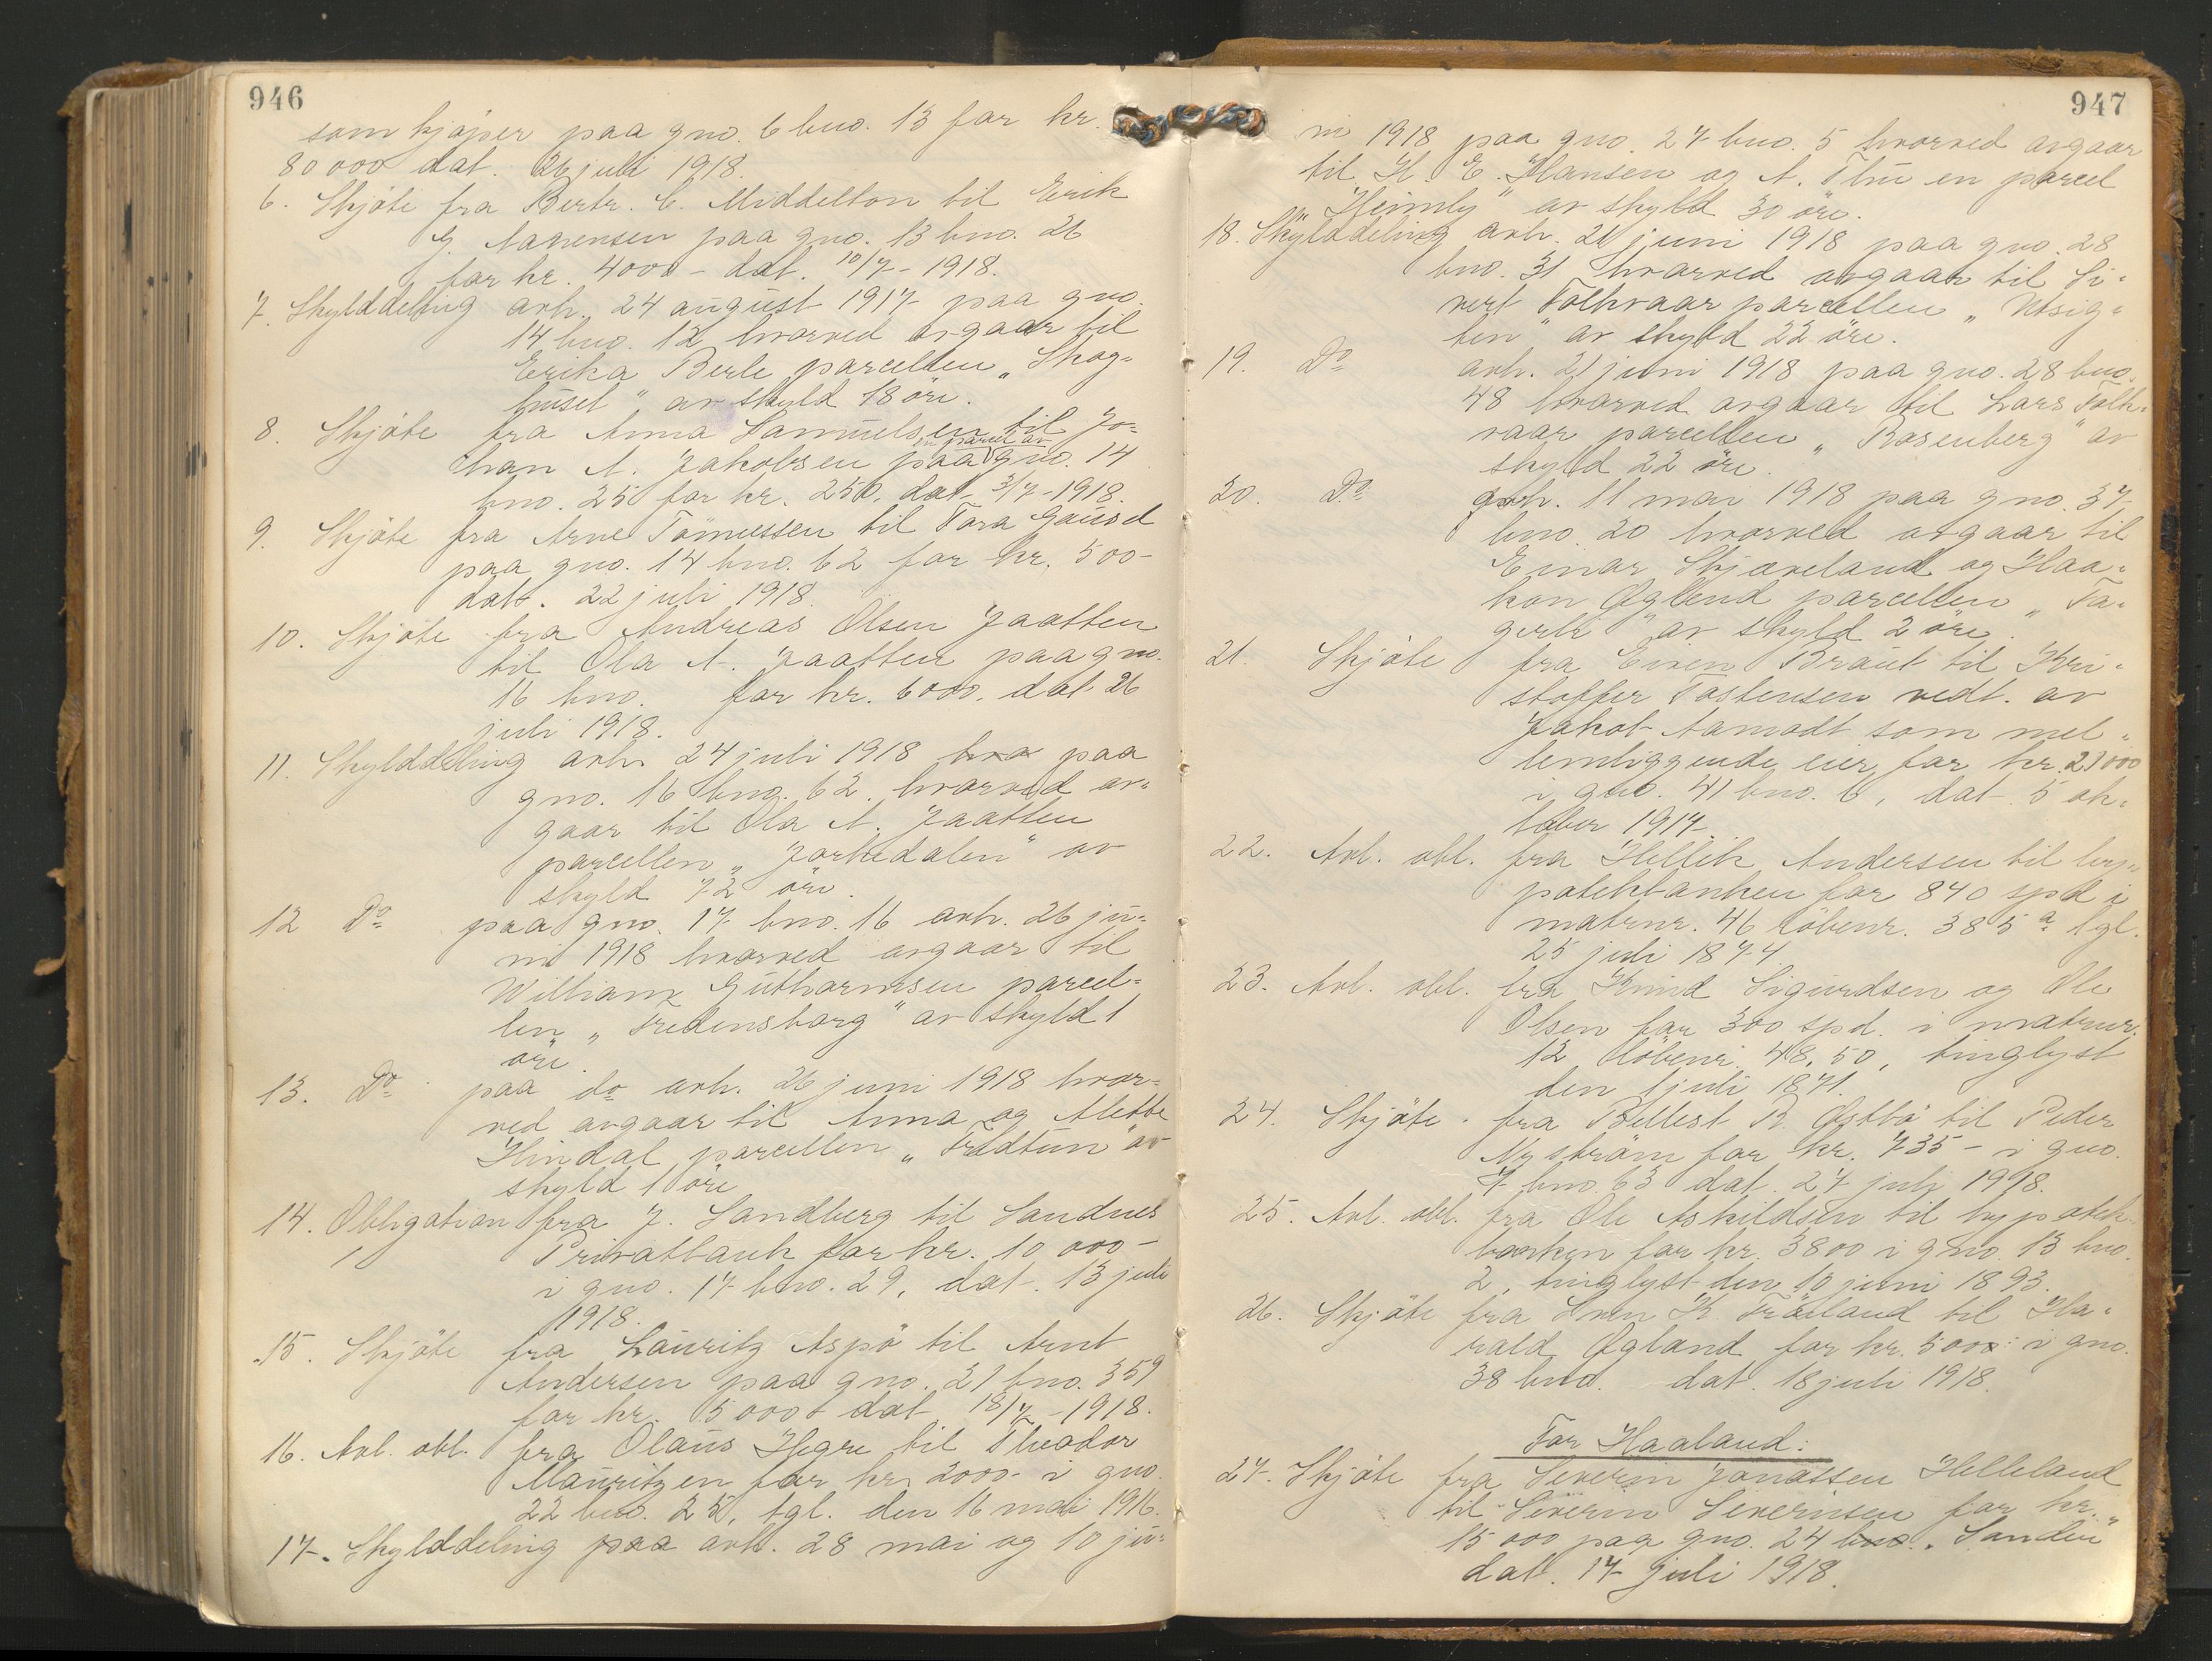 946
som kjøper paa gno. 6 bno. 13 for kr.
80 000 dat. 26 juli 1918.
6. Skjöte fra Bertr. C. Middelton til Erik
G. Aanensen paa gno. 13 bno. 26
for kr. 4000 - dat. 10/7 - 1918.
7. Skylddeling avh. 24 august 1917 paa gno.
14 bno. 12 hvorved avgaar til
Erika Berle parcellen „Skog-
huset" av skyld 18 öre.
8. Skjöte fra Anna Samuelsen til Jo-
en parcel av
han A. Jakobsen paa gno. 14
bno. 25 for kr. 250, dat. 3/7 - 1918.
9. Skjöte fra Arne Tömessen til Tora Gausd
paa gno. 14 bno. 62 for kr. 500 -
dat. 22 juli 1918.
10. Skjöte fra Andreas Olsen Jaatten
til Ola A. Jaatten paa gno.
16 bno. for kr. 6000, dat. 26
juli 1918.
11. Skylddeling avh. 24 juli 1918 hva paa
gno. 16 bno. 62. hvorved av-
gaar til Ola A. Jaatten
parcellen „Jorkedalen" av
skyld 72 öre.
12 Do paa gno. 17 bno. 16 avh. 26 ju-
ni 1918 hvorved avgaar til
William Guthormsen parcel-
len „Fredensborg" av skyld 1
öre.
13. Do paa do avh. 26 juni 1918 hvor-
ved avgaar til Anna og Alette
Hindal parcellen „Fredtun" av
skyld 1 öre
14. Obligation fra J. Sandberg til Sandnes
Privatbank for kr. 10 000 -
i gno. 17 bno. 29, dat. 13 juli
1918.
15. Skjöte fra Lauritz Aspö til Arnt
Andersen paa gno. 21 bno. 359
for kr. 5000 dat. 18/7 - 1918.
16. Avl. obl. fra Olaus Hegre til Theodor
Mauritzen for kr. 2000 - i gno.
22 bno. 25, tgl. den 16 mai 1916.
17. Skylddeling paa avh. 28 mai og 10 ju-
947
ni 1918 paa gno. 27 bno. 5 hvorved avgaar
til H. E. Hansen og A. Thu en parcel
„Heimly" av skyld 30 öre.
18. Skylddeling avh. 21 juni 1918 paa gno. 28
bno. 31 hvorved avgaar til Si-
vert Folkvaar parcellen „Utsig-
ten" av skyld 22 öre.
19. Do avh. 21 juni 1918 paa gno. 28 bno.
48 hvorved avgaar til Lars Folk-
vaar parcellen „Rosenberg" av
skyld 22 öre.
20. Do avh. 11 mai 1918 paa gno. 37
bno. 20 hvorved avgaar til
Einar Skjæveland og Haa-
kon Øglend parcellen „Fa-
gerli" av skyld 2 öre.
21. Skjöte fra Eiven Braut til Kri-
stoffer Tostensen vedt. av
Jakob Aamodt som mel-
lemliggende eier for kr. 21000
i gno. 41 bno. 6, dat. 5 ok-
tober 1917.
22. Avl. obl. fra Hellik Andersen til hy-
potekbanken for 840 spd i
matrnr. 46 löbenr. 385 a tgl.
25 juli 1874.
23. Avl. obl. fra Knud Sigurdsen og Ole
Olsen for 300 spd. i matrnr.
12 löbenr. 48, 50, tinglyst
den 1 juli 1871.
24. Skjöte fra Bellest R. Østbö til Peder
Nyström for kr. 735 - i gno.
7 bno. 63 dat. 27 juli 1918.
25. Avl. obl. fra Ole Askildsen til hypotek-
banken for kr. 3800 i gno. 13 bno.
2, tinglyst den 10 juni 1893.
26. Skjöte fra Sven K. Fröiland til Ha-
rald Øgland for kr. 5000 i gno.
38 bno. dat. 18 juli 1918.
For Haaland:
27. Skjöte fra Severin Jonassen Helleland
til Severin Severinsen for kr.
15 000 paa gno. 24 bno. „Sanden"
dat. 17 juli 1918.